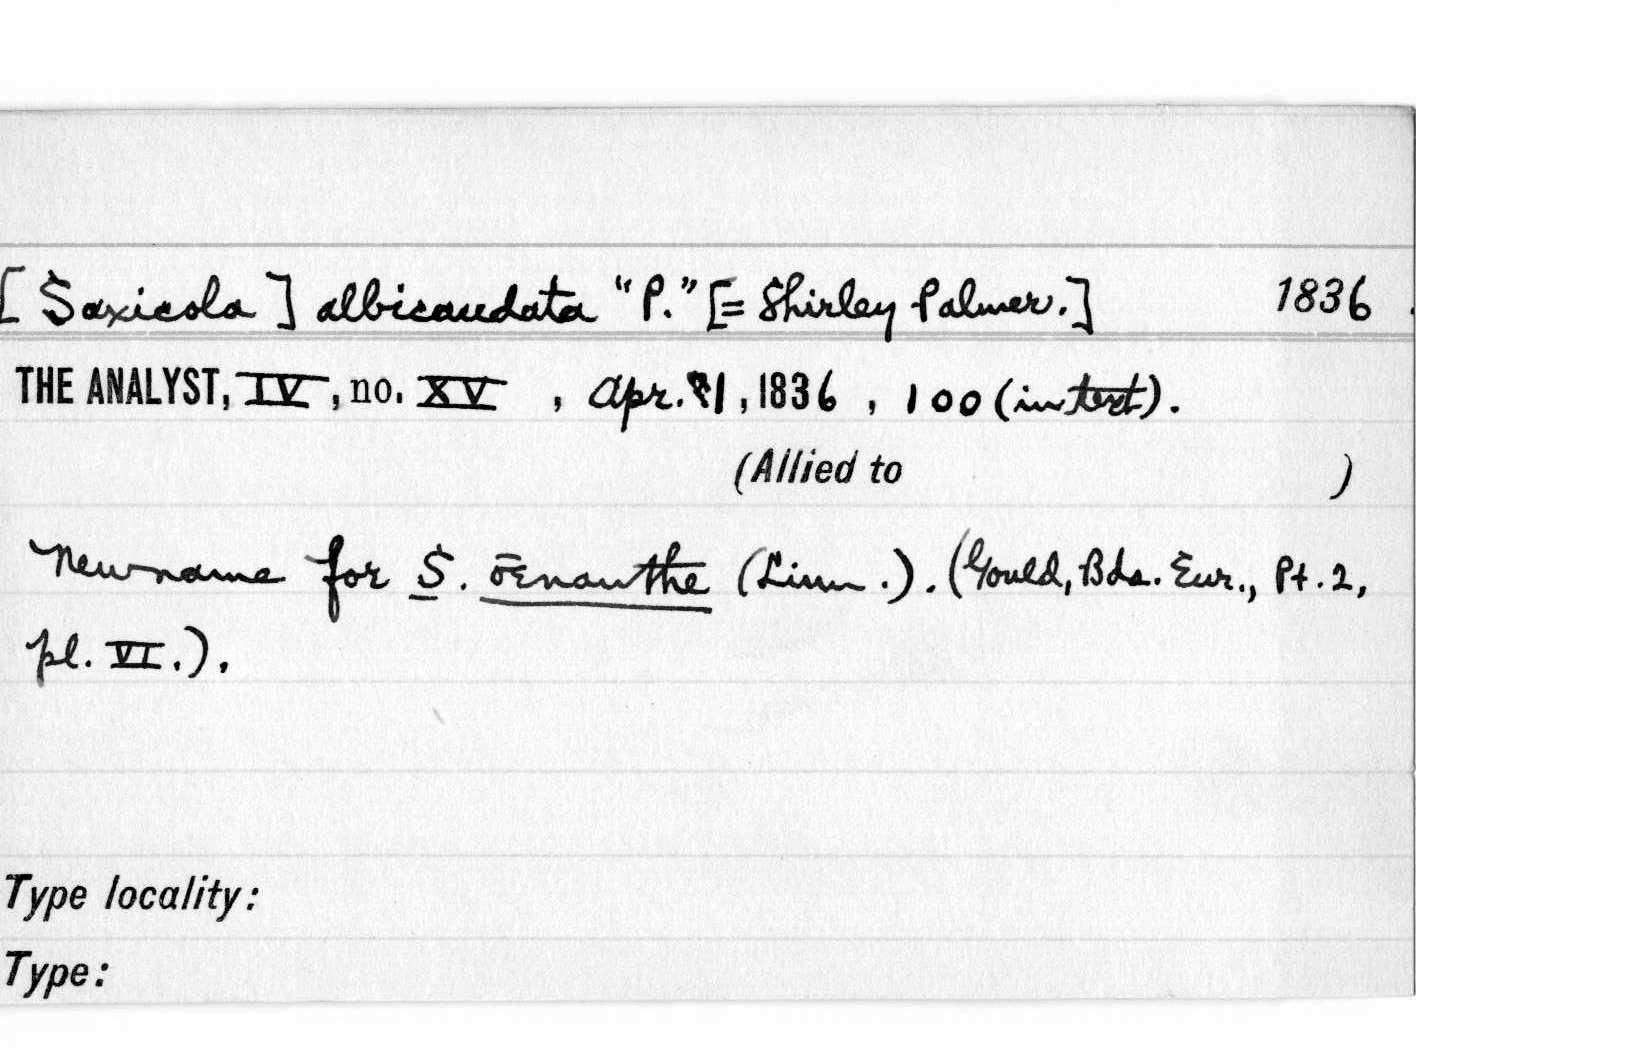 [Saxicola] albicaudata "P." [= Shirley Palmer.] 1836.
THE ANALYST, IV, no. XV, Apr. 1, 1836, 100 (in text).
(Allied to )
New name for S. œnanthe (Linn.). (Gould, Bds. Eur., Pt. 2,
pl. VI.).
Type locality:
Type: